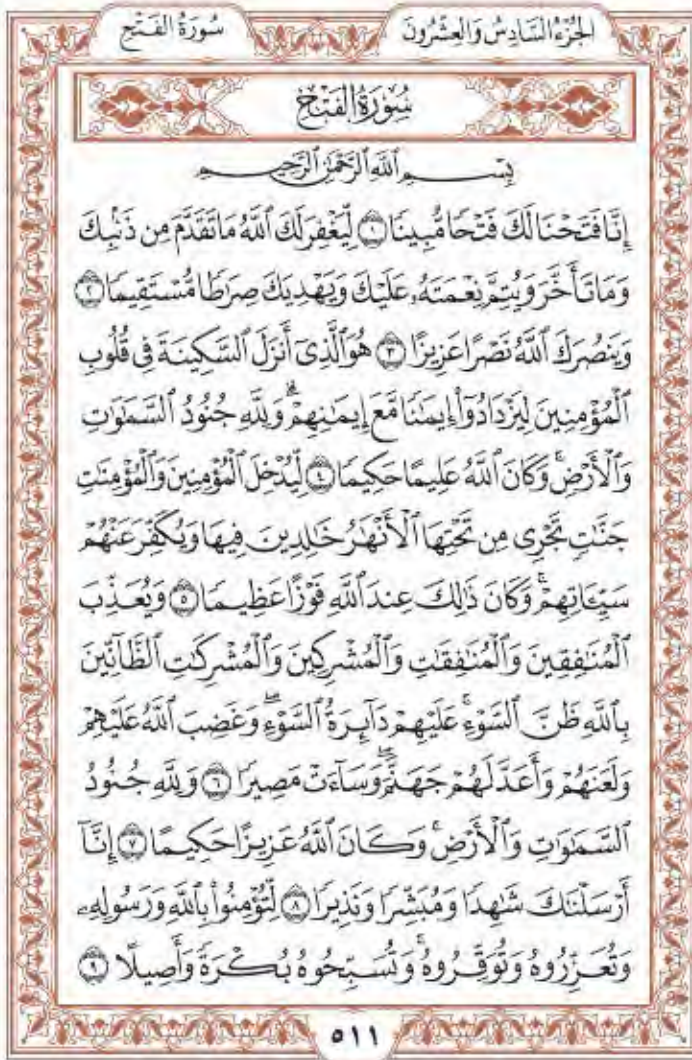 الجُزْءُ السَّادِسُ وَالعِشْرُونَ
سُورَةُ الفَتْحِ
سُورَةُ الفَتْحِ
بِسْمِ ٱللَّهِ ٱلرَّحْمَٰنِ ٱلرَّحِيمِ
إِنَّا فَتَحْنَا لَكَ فَتْحًا مُّبِينًا ۝١ لِّيَغْفِرَ لَكَ ٱللَّهُ مَا تَقَدَّمَ مِن ذَنۢبِكَ
وَمَا تَأَخَّرَ وَيُتِمَّ نِعْمَتَهُۥ عَلَيْكَ وَيَهْدِيَكَ صِرَٰطًا مُّسْتَقِيمًا ۝٢
وَيَنصُرَكَ ٱللَّهُ نَصْرًا عَزِيزًا ۝٣ هُوَ ٱلَّذِىٓ أَنزَلَ ٱلسَّكِينَةَ فِى قُلُوبِ
ٱلْمُؤْمِنِينَ لِيَزْدَادُوٓا۟ إِيمَٰنًا مَّعَ إِيمَٰنِهِمْ ۗ وَلِلَّهِ جُنُودُ ٱلسَّمَٰوَٰتِ
وَٱلْأَرْضِ ۚ وَكَانَ ٱللَّهُ عَلِيمًا حَكِيمًا ۝٤ لِّيُدْخِلَ ٱلْمُؤْمِنِينَ وَٱلْمُؤْمِنَٰتِ
جَنَّٰتٍ تَجْرِى مِن تَحْتِهَا ٱلْأَنْهَٰرُ خَٰلِدِينَ فِيهَا وَيُكَفِّرَ عَنْهُمْ
سَيِّـَٔاتِهِمْ ۚ وَكَانَ ذَٰلِكَ عِندَ ٱللَّهِ فَوْزًا عَظِيمًا ۝٥ وَيُعَذِّبَ
ٱلْمُنَٰفِقِينَ وَٱلْمُنَٰفِقَٰتِ وَٱلْمُشْرِكِينَ وَٱلْمُشْرِكَٰتِ ٱلظَّآنِّينَ
بِٱللَّهِ ظَنَّ ٱلسَّوْءِ ۚ عَلَيْهِمْ دَآئِرَةُ ٱلسَّوْءِ ۖ وَغَضِبَ ٱللَّهُ عَلَيْهِمْ
وَلَعَنَهُمْ وَأَعَدَّ لَهُمْ جَهَنَّمَ ۖ وَسَآءَتْ مَصِيرًا ۝٦ وَلِلَّهِ جُنُودُ
ٱلسَّمَٰوَٰتِ وَٱلْأَرْضِ ۚ وَكَانَ ٱللَّهُ عَزِيزًا حَكِيمًا ۝٧ إِنَّآ
أَرْسَلْنَٰكَ شَٰهِدًا وَمُبَشِّرًا وَنَذِيرًا ۝٨ لِّتُؤْمِنُوا۟ بِٱللَّهِ وَرَسُولِهِۦ
وَتُعَزِّرُوهُ وَتُوَقِّرُوهُ ۚ وَتُسَبِّحُوهُ بُكْرَةً وَأَصِيلًا ۝٩
٥١١